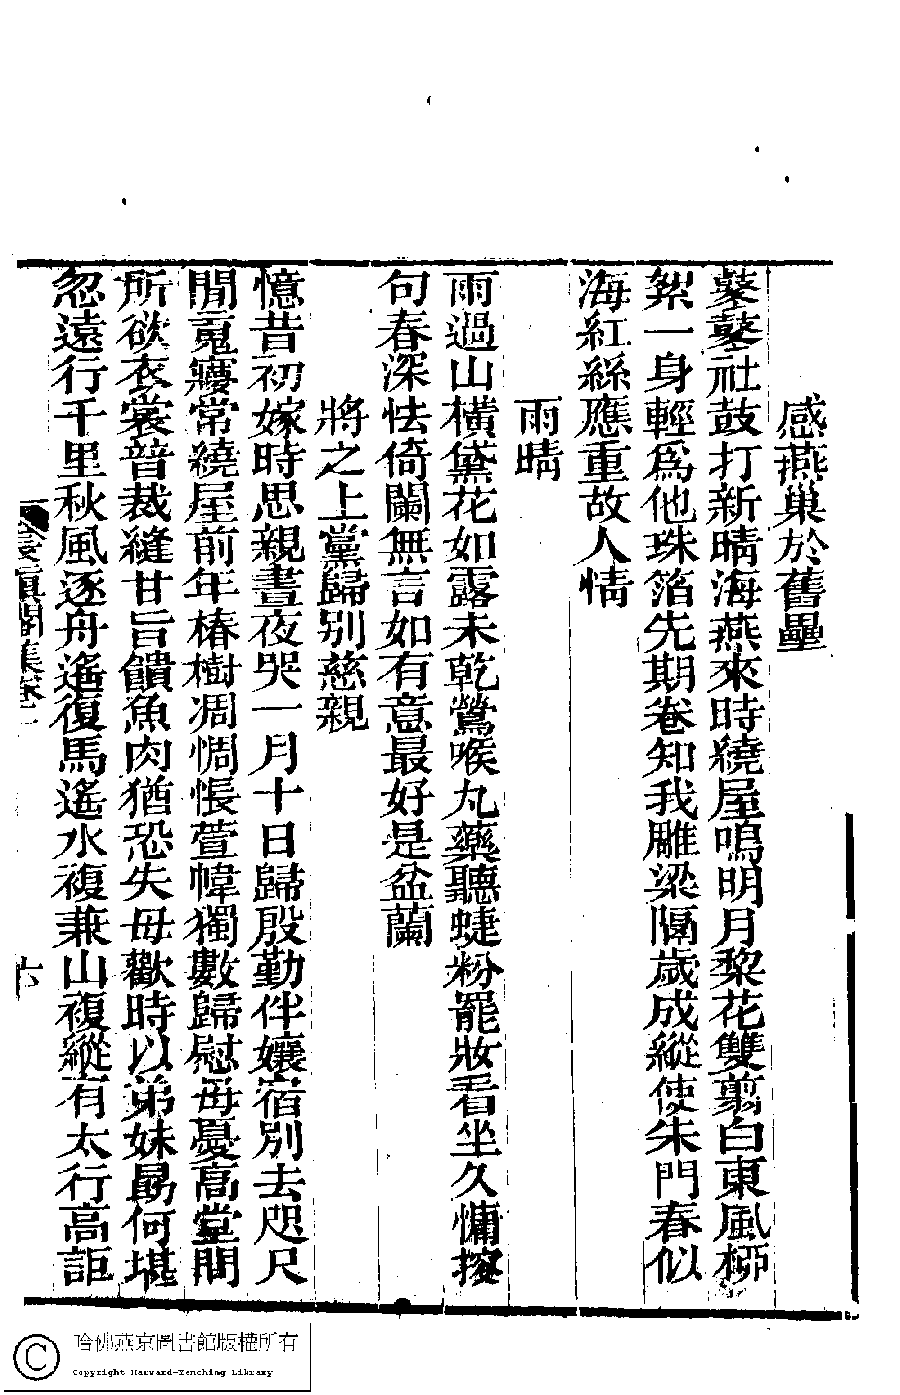 感燕巢於舊壘
鼕鼕社鼓打新晴海燕來時繞屋鳴明月黎花雙翦白東風柳
絮一身輕爲他珠箔先期卷知我雕梁隔歲成縱使朱門春似
海紅絲應重故人情
雨晴
雨過山橫黛花如露未乾鶯喉丸藥聽蜨粉罷妝看坐久慵擪
句春深怯倚闌無言如有意最好是盆蘭
將之上黨歸別慈親
憶昔初嫁時思親晝夜哭一月十日歸殷勤伴孃宿別去咫尺
間䰟㝱常繞屋前年椿樹凋惆悵萱幃獨數歸慰母憂高堂問
所欲衣裳普裁縫甘旨饋魚肉猶恐失母歡時以弟妹勗何堪
忽遠行千里秋風逐舟遙復馬遙水複兼山複縱有太行高詎
閣集卷一
六
哈佛燕京圖書館版權所有
Copyright Harvard-Yenching Library